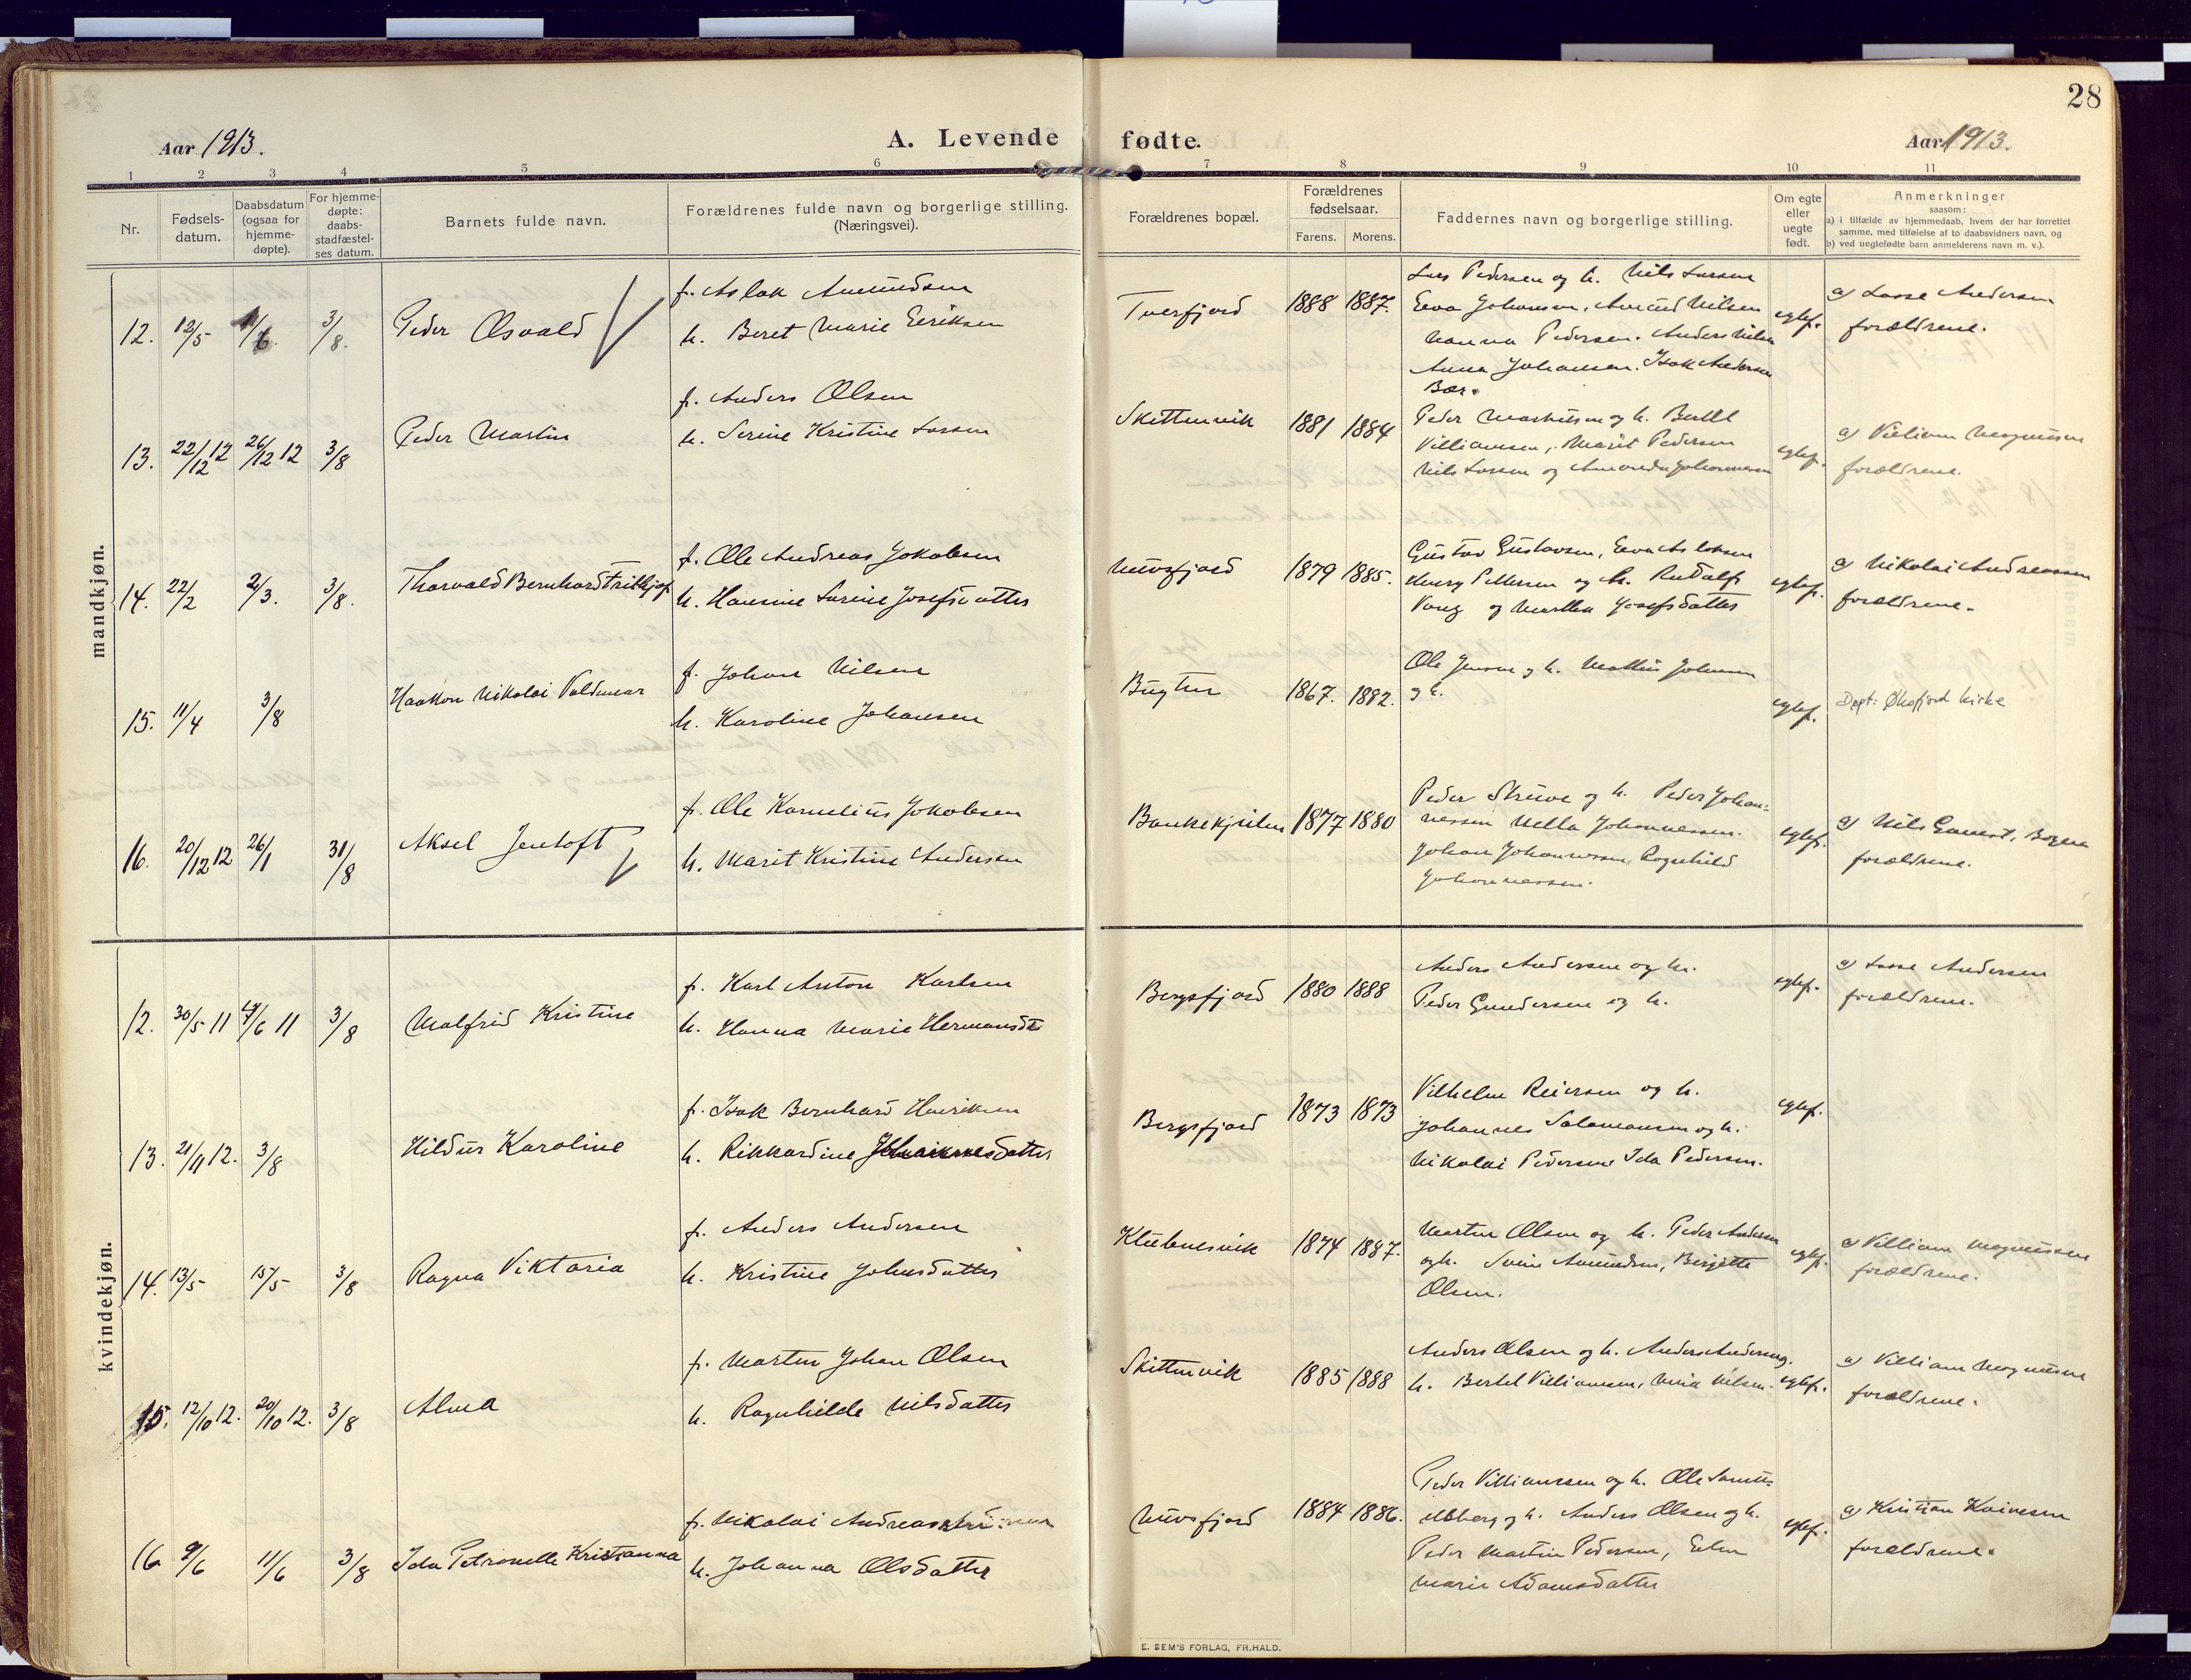 28
Aar 1913.
A. Levende fødte.
Aar 1913.
1 2 3 4 5 6 7 8 9 10 11
Nr.
Fødsels-
datum.
Daabsdatum
(ogsaa for
hjemme-
døpte).
For hjemme-
døpte:
daabs-
stadfæstel-
ses datum.
Barnets fulde navn.
Forældrenes fulde navn og borgerlige stilling.
(Næringsvei).
Forældrenes bopæl.
Forældrenes
fødselsaar.
Farens. Morens.
Faddernes navn og borgerlige stilling.
Om egte
eller
uegte
født.
Anmerkninger
saasom:
a) i tilfælde av hjemmedaab, hvem der har forrettet
samme, med tilføielse af to daabsvidners navn, og
b) ved uegtefødte barn anmelderens navn m. v.).
mandkjøn.
12. 12/5 1/6. 3/8. Peder Osvald
f. Aslak Amundsen
h. Beret Marie Eeriksen
Tverfjord 1888 1887.
Lars Pedersen og h. Nils Larsen
Eeva Johansen, Amund Nilsen
Hanna Pedersen. Anders Nilsen
Anna Johansen. Isak Andersen
Bær.
egtef.
a) Lasse Andersen
forældrene.
13. 22/12 12 26/12 12 3/8 Peder Martin
f. Anders Olsen
h. Serine Kristine Larsen
Skittenvik 1881 1884
Peder Mathisen og h. Bertel
Villiamsen, Marit Pedersen
Nils Larsen og Amanda Johannesen
egtef.
a) Villiam Magnussen
forældrene.
14. 22/2 2/3. 3/8. Thorvald Bernhard Frithjof
f. Ole Andreas Jakobsen
h. Hansine Lurine Josefsdatter
Nuvsfjord 1879 1885.
Gustav Gustavsen, Eeva Aslaksen
Henry Pettersen og h. Rudolf
Vang og Martha Josefsdatter
egtef.
a) Nikolai Andreassen
forældrene.
15. 11/4 3/8 Haakon Nikolai Valdemar
f. Johan Nilsen
h. Karoline Johansen
Bugten 1867. 1882.
Ole Jensen og h. Mathis Johansen
og h.
egtef.
Døpt: Øksfjord kirke
16. 20/12 12 26/1 31/8 Aksel Jentoft
f. Ole Kornelius Jakobsen
h. Marit Kristine Andersen
Bankekjeilen 1877 1880
Peder Struve og h. Peder Johan-
nessen Nella Johannessen.
Johan Johannessen, Ragnhild
Johannessen.
egtef.
a) Nils Gamst, Bogen
forældrene.
kvindekjøn.
12. 30/5 11 17/6 11 3/8 Malfrid Kristine
f. Karl Anton Karlsen
h. Hanna Marie Hermansdt
Bergsfjord 1880 1888
Anders Andersen og h.
Peder Gundersen og h.
egtef.
a) Lasse Andersen
forældrene.
13. 21/11 12. 3/8 Hildur Karoline
f. Isak Bernhard Henriksen
h. Rikkardine
Bergsfjord 1873 1873
Vilhelm Reiersen og h.
Johannes Salamonsen og h.
Nikolai Pedersen Ida Pedersen.
egtef.
14. 13/5 15/5 3/8 Ragna Viktoria
f. Anders Andersen
h. Kristine Johnsdatter
Klubnesvik 1874 1887.
Martin Olsen og h. Peder Andersen
og h. Svein Amundsen, Birgitte
Olsen.
egtef.
a) Villiam Magnussen
forældrene.
15. 12/10 12. 20/10 12. 3/8 Alma
f. Martin Johan Olsen
h. Ragnhilde Nilsdatter
Skittenvik 1885 1888
Anders Olsen og h. Anders Andersen og
h. Bertel Villiamsen, Nilsen.
egtef.
a) Villiam Magnussen
forældrene.
16 9/6 11/6 3/8 Ida Petronelle Kristianna
f. Nikolai Andreas
h. Johanna Olsdatter
Nuvsfjord 1884 1886.
Peder Villiamsen og h. Ole
og h. Anders Olsen og h.
Peder Martin Pedersen, Elen
Marie Adamsdatter
egtef.
a) Kristian Kaivesen
forældrene.
E. SEM'S FORLAG, FR.HALD.